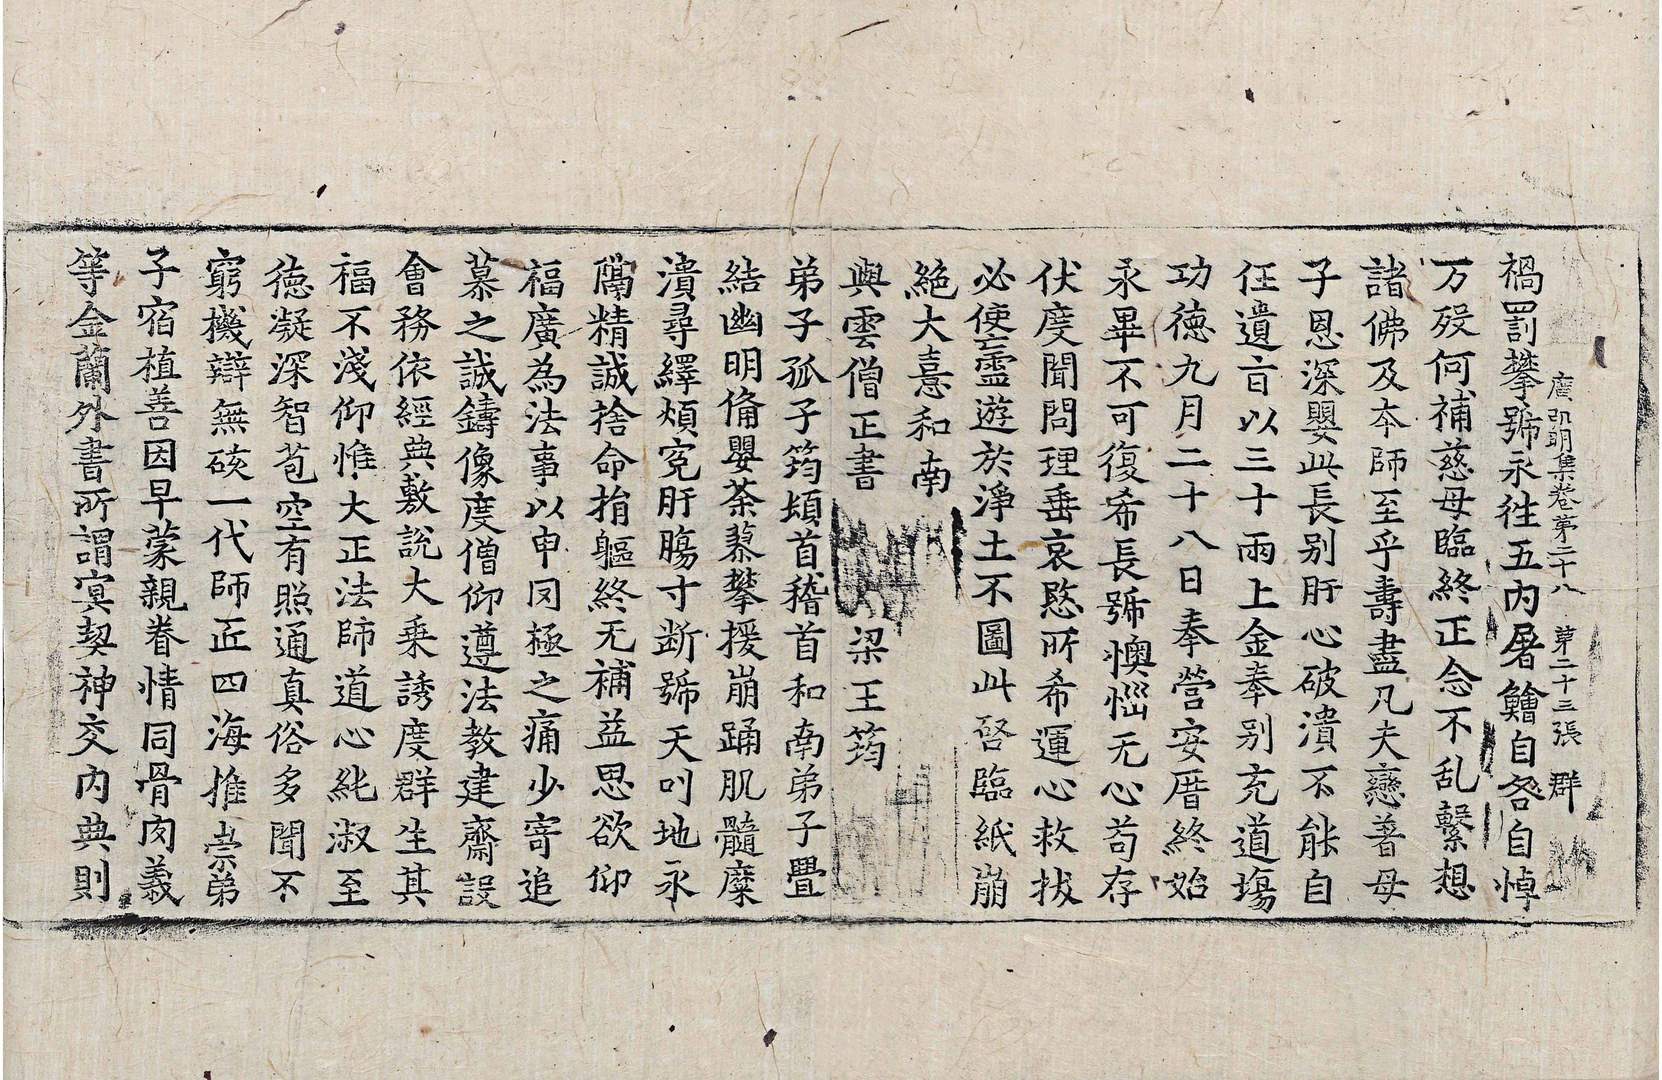 廣弘明集卷第二十八　第二十三張　群
禍罰攀號永往五內屠鱠自咎自悼
万殁何補慈母臨終正念不乱繫想
諸佛及夲師至乎壽盡凡夫戀著母
子恩深嬰此長别肝心破潰不能自
任遺言以三十兩上金奉别充道場
功德九月二十八日奉營安厝終始
永畢不可復希長號懊惱无心苟存
伏度聞問理垂哀愍所希運心救拔
必使亡靈遊於淨土不圖此啓臨紙崩
絕大憙和南
與雲僧正書　梁王筠
弟子孤子筠頓首稽首和南弟子舋
結幽明俻嬰荼蓼攀援崩踊肌髓糜
潰尋繹煩冤肝腸寸断號天叩地永
隔精誠捨命捐軀終无補益思欲仰
福廣為法事以申罔極之痛少寄追
慕之誠鑄像度僧仰遵法教建齋設
會務依經典敷說大乗誘度群生其
福不淺仰惟大正法師道心純淑至
德凝深智苞空有照通真俗多聞不
窮機辯無硋一代師匠四海推崇弟
子宿植善因早蒙親眷情同骨肉義
等金蘭外書所謂冥契神交內典則